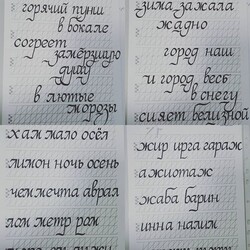 горячий пунш
в бокале
согреет
замёрзшую
душу
в лютые
морозы
зима зажала
жадно
город наш
и город весь
в снегу
сияет белизной
хам мало осёл
лимон ночь осень
чем мечта аврал
лом метр ром
жир ирга гараж
ажиотаж
жаба барин
инна налим